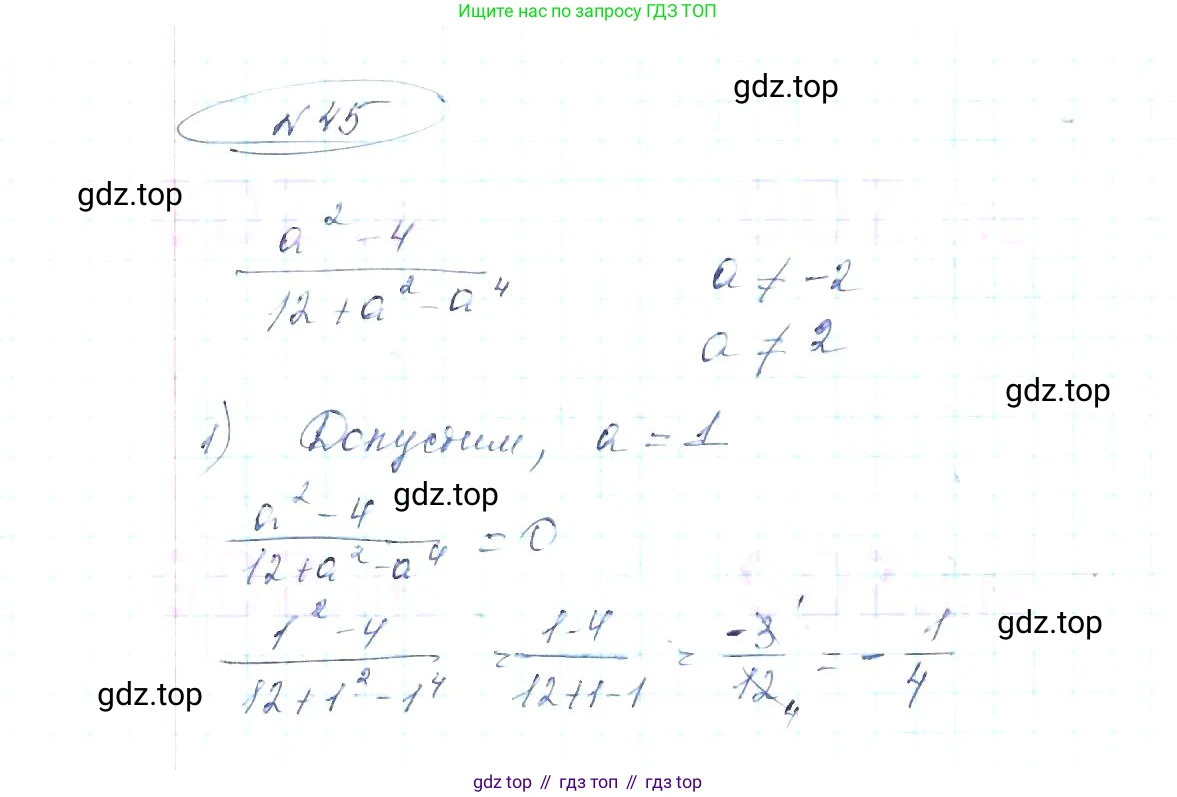 Ищите нас по запросу ГДЗ ТОП
gdz.top
N 45
gdz.top
a² - 4 / 12 + a² - a⁴
a ≠ -2
a ≠ 2
gdz.top
1) Допустим, a = 1
gdz.top
a² - 4 / 12 + a² - a⁴ = 0
gdz.top
1² - 4 / 12 + 1² - 1⁴ = 1 - 4 / 12 + 1 - 1 = -3 1 / 12 4 = - 1 / 4
gdz.top
gdz top // гдз топ // гдз top